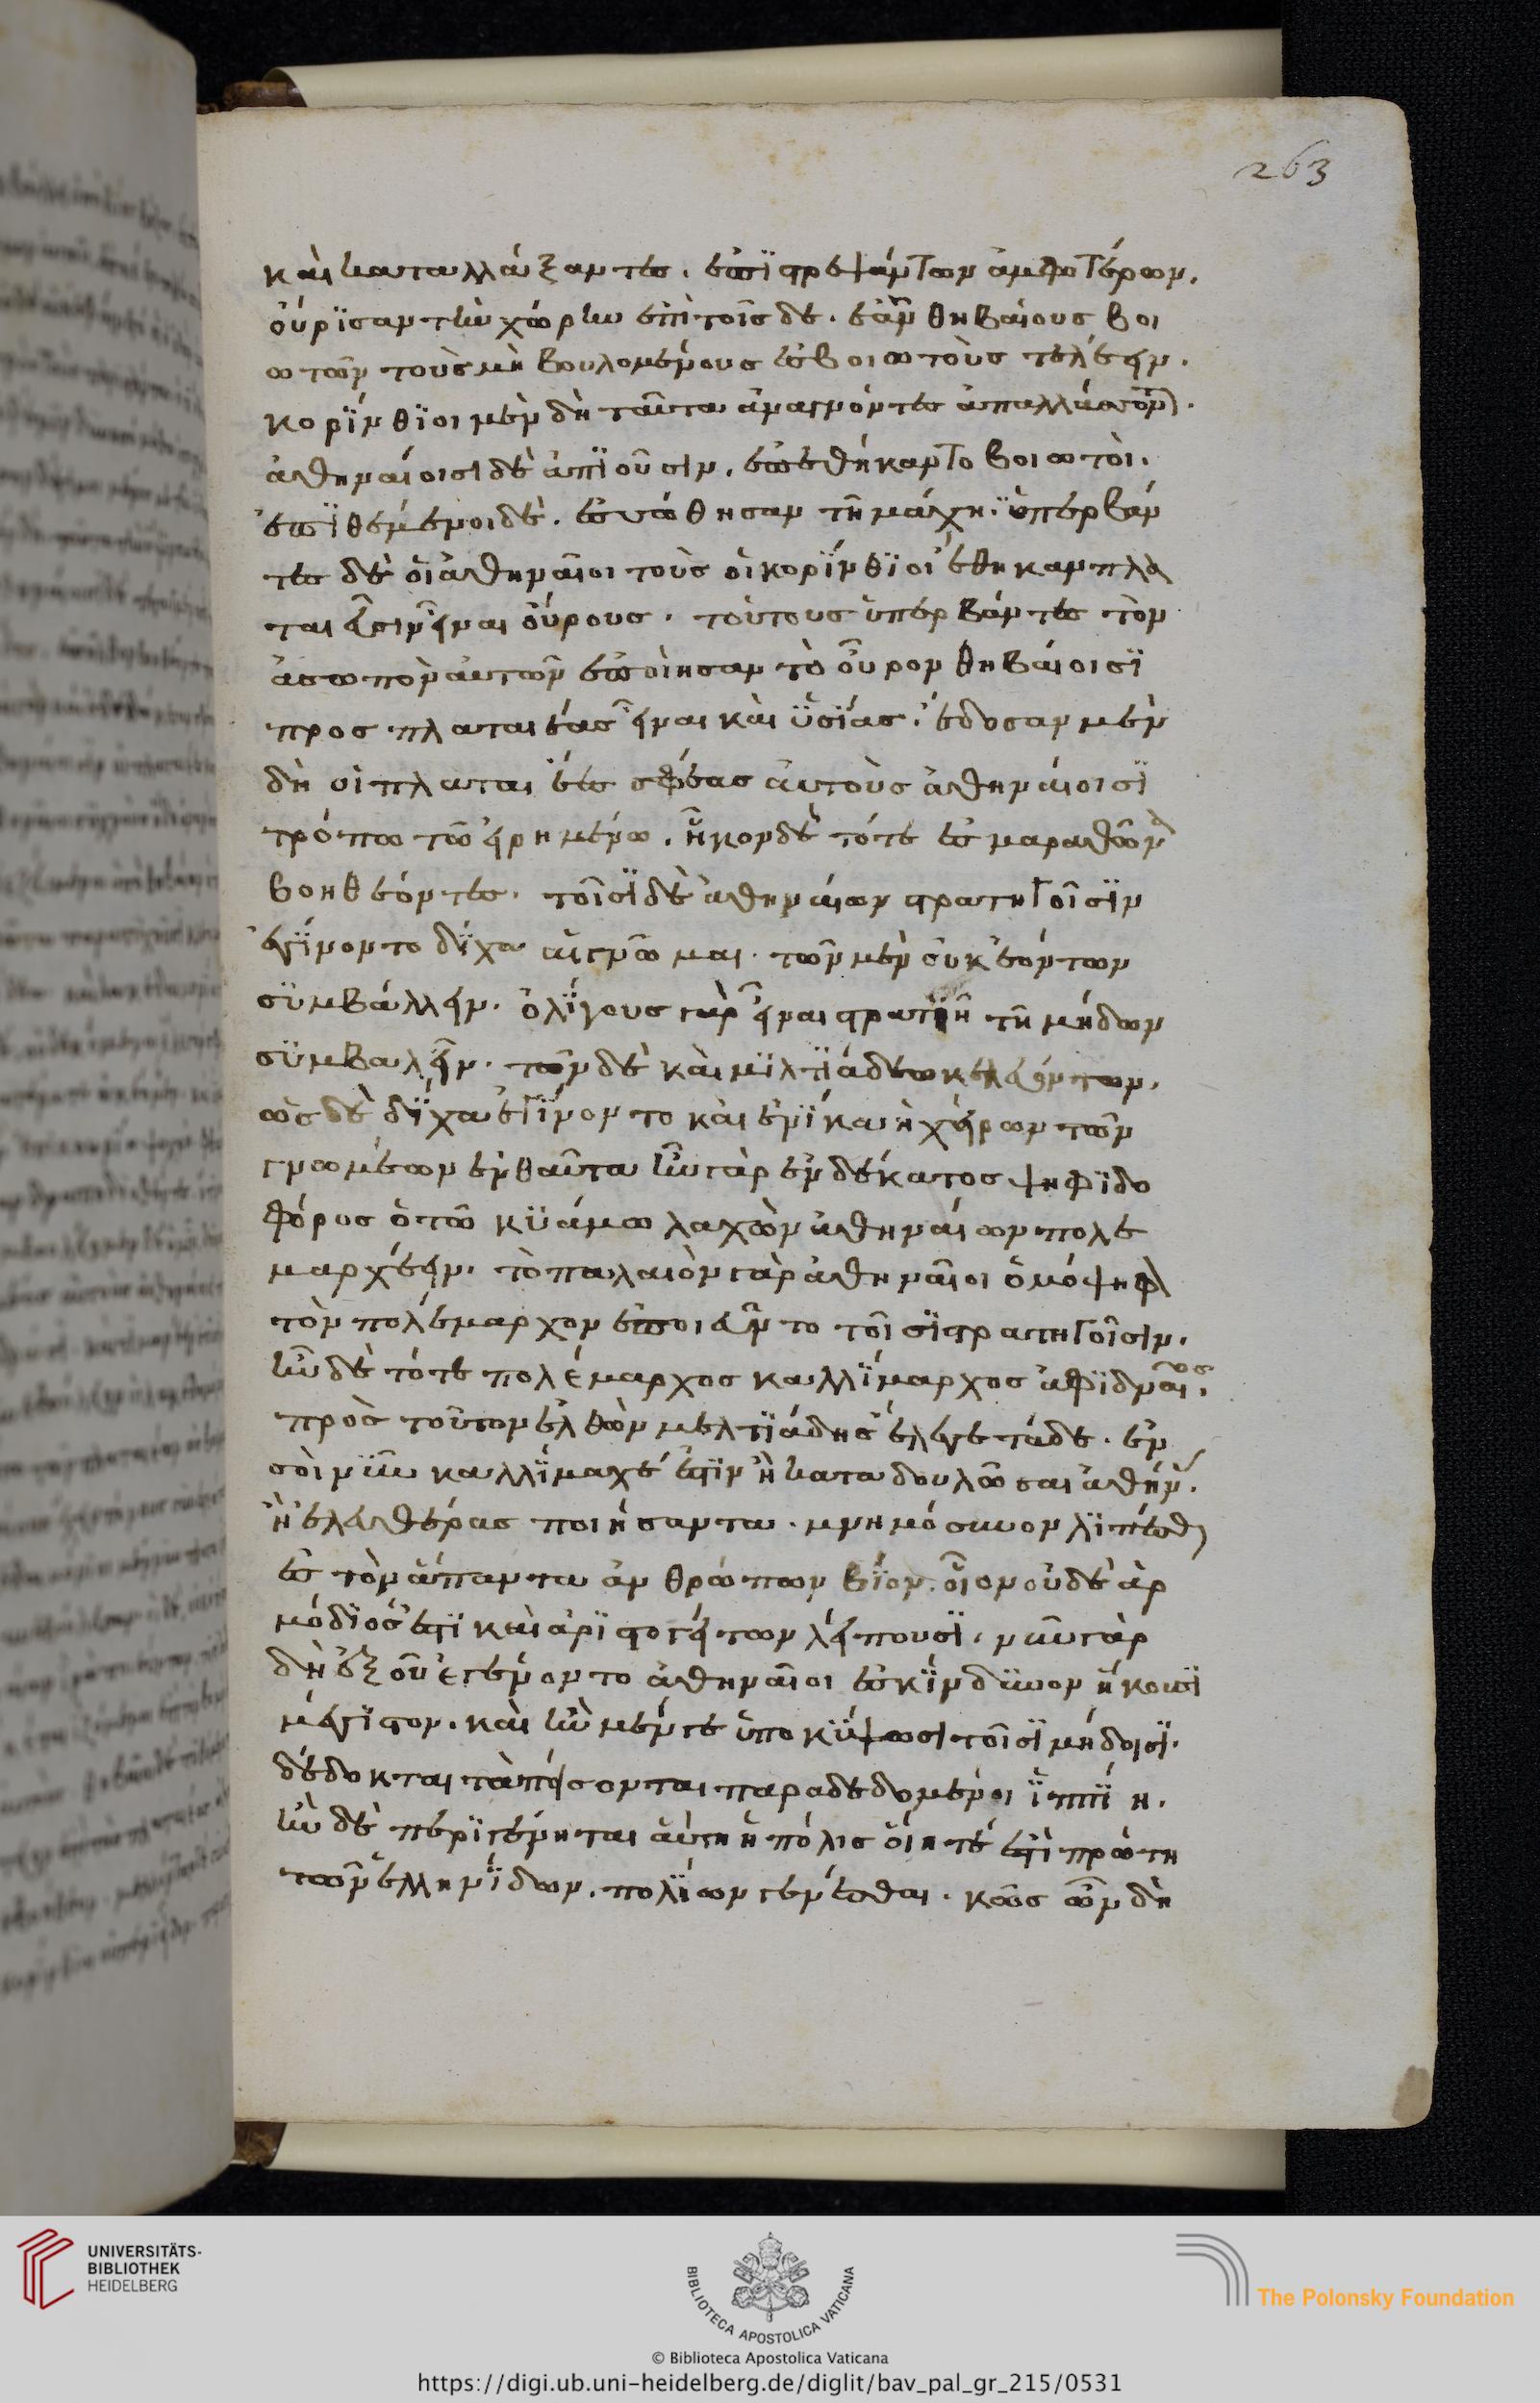 καὶ καταλλάξαντες. ἐπιστρεψάντων ἀμφοτέρων.
οὔρισαν τὴν χώρην ἐπὶ τοῖσδε. ἐᾶν θηβαίους βοι
ωτῶν τοὺς μὴ βουλομένους ἐς βοιωτοὺς τελέειν.
κορίνθιοι μὲν δὴ ταῦτα ἀναγνόντες ἀπαλλάσσοντο.
ἀθηναίοισι δὲ ἀπιοῦσιν. ἐπεθήκαντο βοιωτοὶ.
ἐπιθέμενοι δὲ. ἑσσώθησαν τῆ μάχη. ὑπερβάν
τες δὲ οἱ ἀθηναῖοι τοὺς οἱ κορίνθιοι ἔθηκαν πλα
ταιεῦσιν εἶναι οὔρους. τούτους ὑπερβάντες τὸν
ἀσωπὸν αὐτῶν ἐποίησαν τὸ οὖρον θηβαίοισι
προς πλαταιέας εἶναι καὶ ὑσίας. ἔδοσαν μὲν
δὴ οἱ πλαταιέες σφέας αὐτοὺς ἀθηναίοισι
τρόπω τῶ εἰρημένω. ἧκον δὲ τότε ἐς μαραθῶνα
βοηθέοντες. τοῖσι δὲ ἀθηναίων στρατηγοῖσιν
ἐγίνοντο δίχα αἱ γνῶμαι. τῶν μὲν οὐκ ἐόντων
συμβάλλειν. ὀλίγους γὰρ εἶναι στρατιῆ τῆ μήδων
συμβαλεῖν. τῶν δὲ καὶ μιλτιάδεω κελευόντων.
ὡς δὲ δίχα ἐγίνοντο καὶ ἐνίκα ἡ χείρων τῶν
γνωμέων ἐνθαῦτα ἦν γὰρ ἑνδέκατος ψηφιδο
φόρος ὁ τῶ κυάμω λαχὼν ἀθηναίων πολε
μαρχέειν. τὸ παλαιὸν γὰρ ἀθηναῖοι ὁμόψηφον
τὸν πολέμαρχον ἐποιεῦντο τοῖσι στρατηγοῖσιν.
ἦν δὲ τότε πολέμαρχος καλλίμαχος ἀφιδναῖος.
πρὸς τοῦτον ἐλθὼν μελτιάδης ἔλεγε τάδε. ἐν
σοὶ νῦν καλλίμαχε ἐστὶν ἢ καταδουλῶσαι ἀθήνας.
ἢ ἐλευθέρας ποιήσαντα. μνημόσυνον λιπέσθαι
ἐς τὸν ἅπαντα ἀνθρώπων βίον. οἷον οὐδὲ ἁρ
μόδιός ἐστι καὶ ἀριστογείτων λείπουσι. νῦν γὰρ
δὴ ἐξ οὗ ἐγένοντο ἀθηναῖοι ἐς κίνδυνον ἥκουσι
μέγιστον. καὶ ἢν μέν γε ὑποκύψωσι τοῖσι μήδοισι.
δέδοκται τὰ πείσονται παραδεδομένοι ἱππίη.
ἢν δὲ περιγένηται αὕτη ἡ πόλις οἵη τέ ἐστι πρώτη
τῶν ἑλληνίδων. πολίων γενέσθαι. κῶς ὦν δὴ
263
UNIVERSITÄTS-
BIBLIOTHEK
HEIDELBERG
BIBLIOTECA APOSTOLICA VATICANA
© Biblioteca Apostolica Vaticana
The Polonsky Foundation
https://digi.ub.uni-heidelberg.de/diglit/bav_pal_gr_215/0531